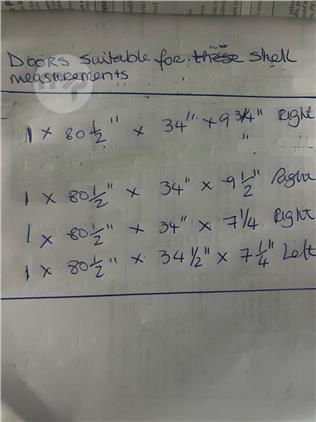 DOORS Suitable for these shell
measurements
1 x 80 1/2" x 34" x 9 3/4" Right
"
1 x 80 1/2" x 34" x 9 1/2" Right
1 x 80 1/2" x 34" x 7 1/4 Right
1 x 80 1/2" x 34 1/2" x 7 1/4" Left